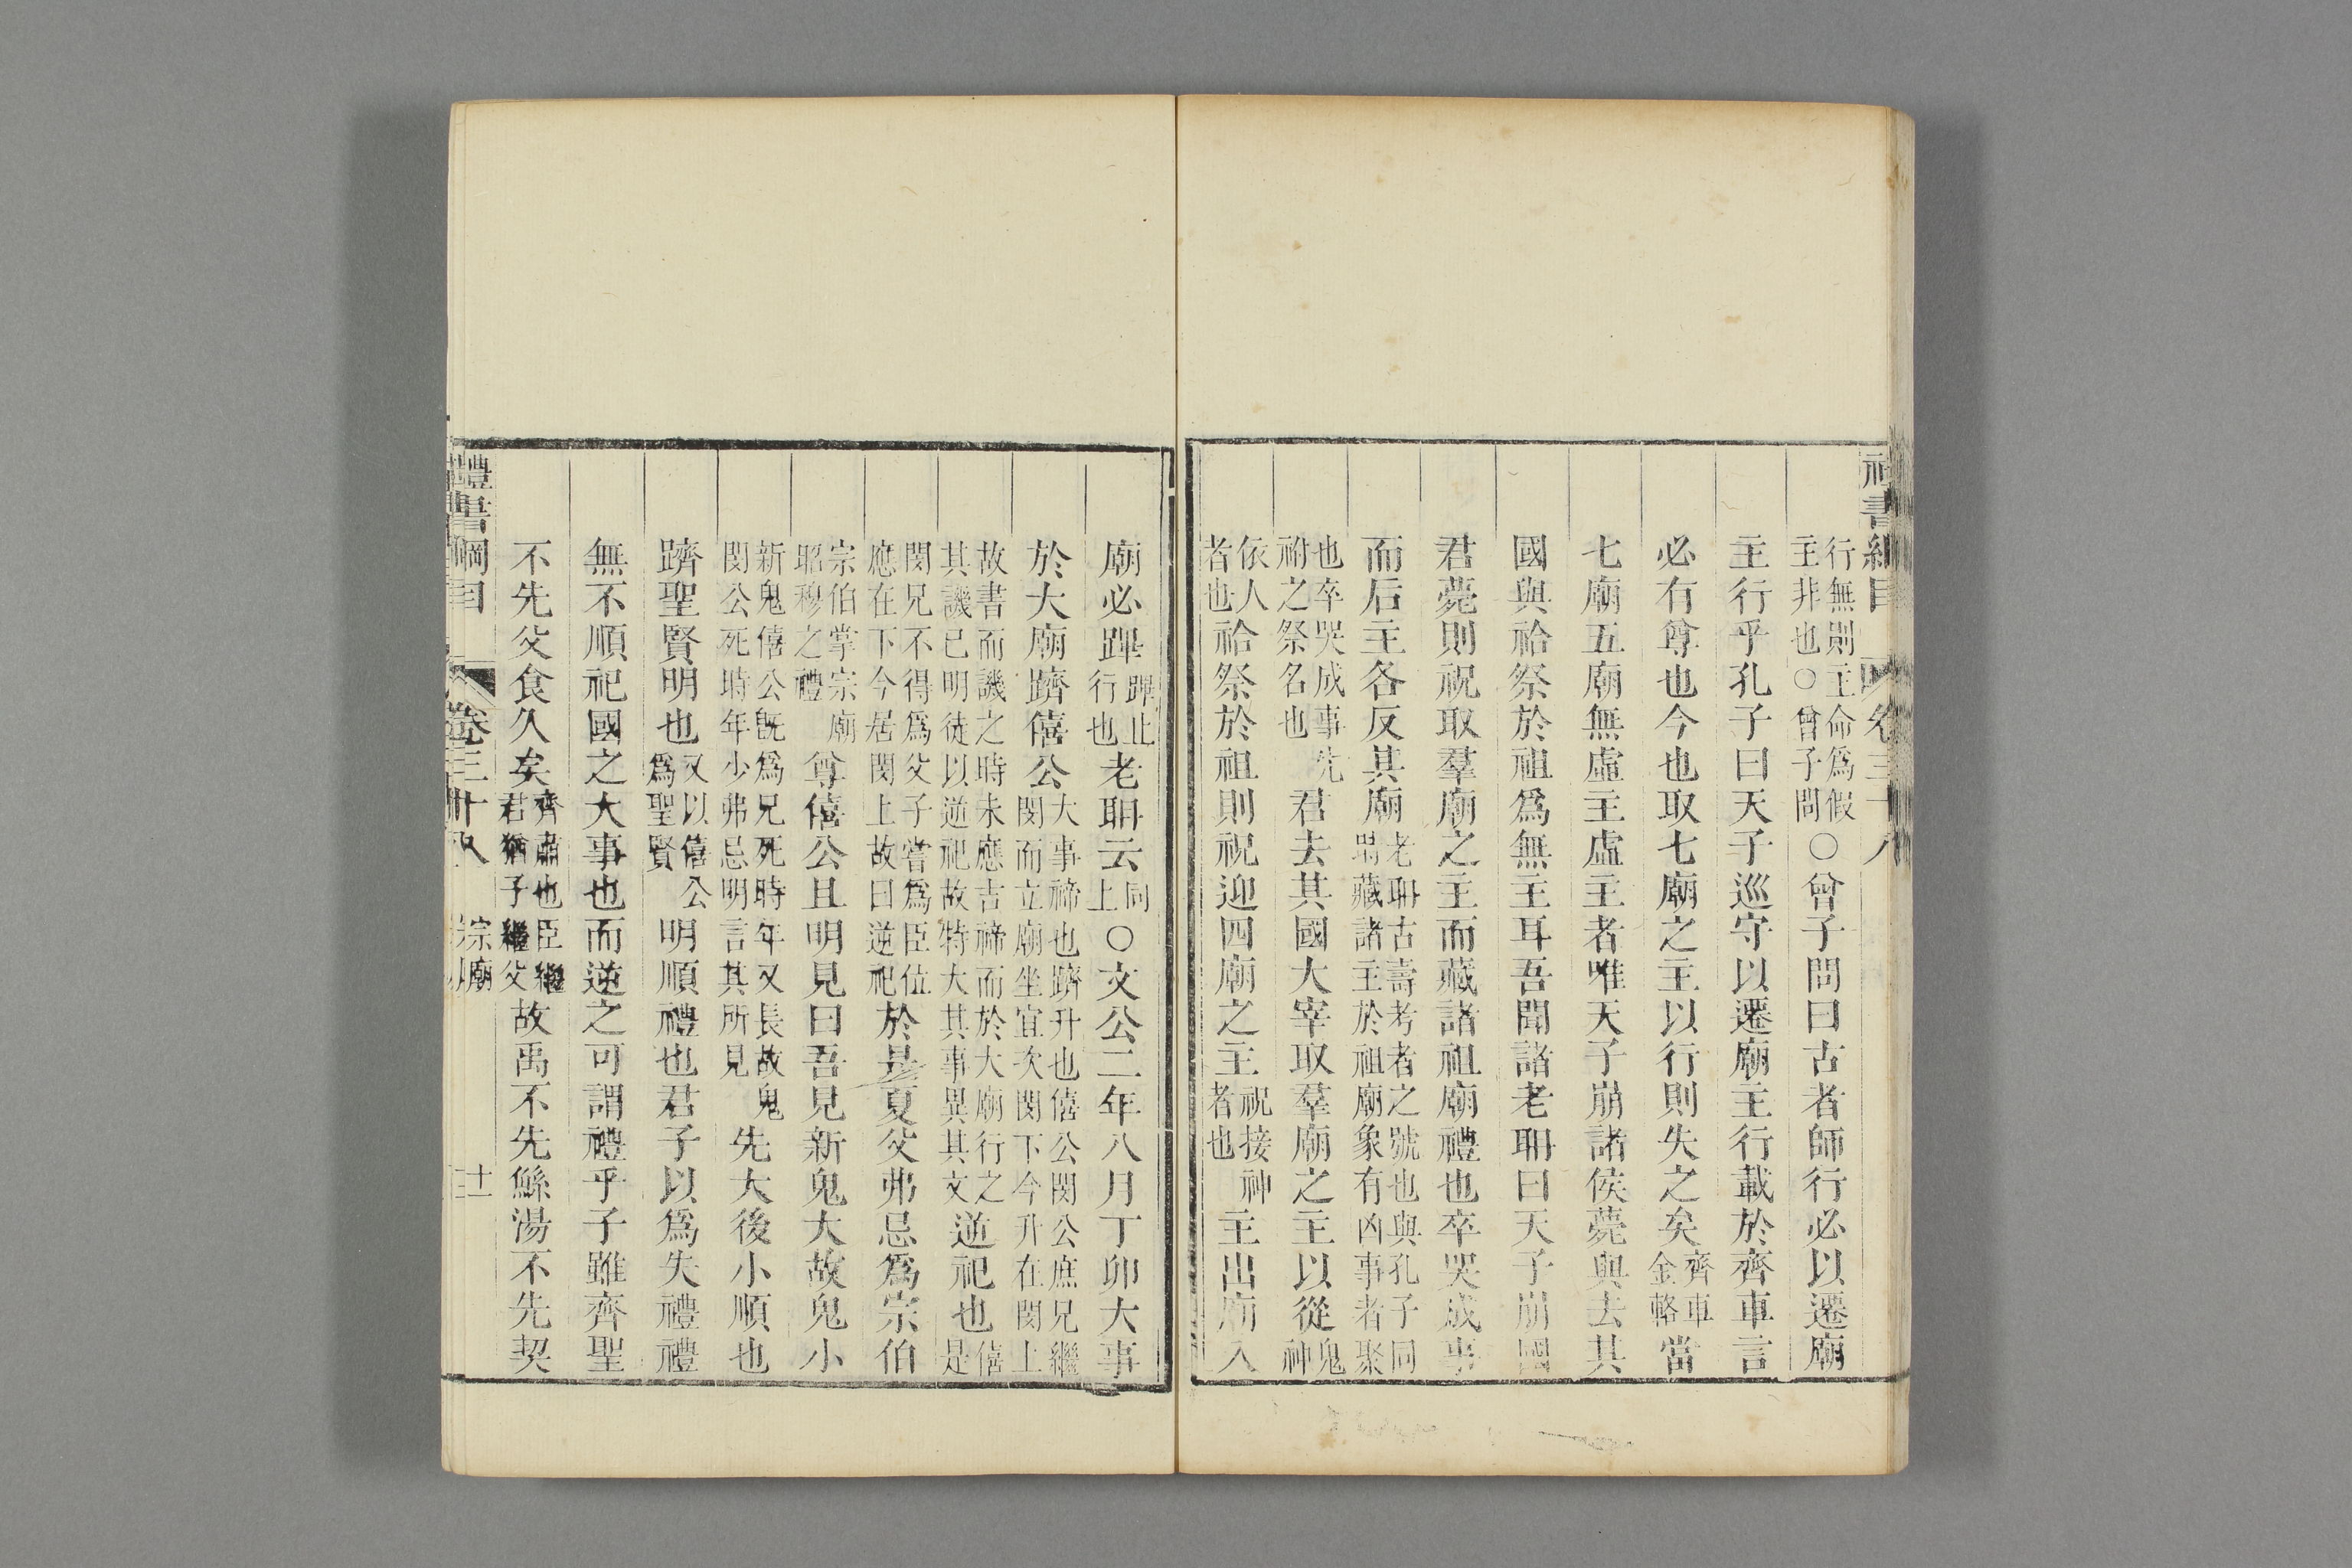 行無則主命爲假主非也○曾子問○曾子問曰古者師行必以遷廟
主行乎孔子曰天子巡守以遷廟主行載於齊車言
必有尊也今也取七廟之主以行則失之矣齊車金輅當
七廟五廟無虛主虛主者唯天子崩諸侯薨與去其
國與祫祭於祖爲無主耳吾聞諸老聃曰天子崩國
君薨則祝取羣廟之主而藏諸祖廟禮也卒哭成事
而后主各反其廟老聃古壽考者之號也與孔子同時藏諸主於祖廟象有凶事者聚
也卒哭成事先祔之祭名也君去其國大宰取羣廟之主以從鬼神
依人者也祫祭於祖則祝迎四廟之主祝接神者也主出廟入
廟必蹕蹕止行也老聃云同上○文公二年八月丁卯大事
於大廟躋僖公大事禘也躋升也僖公閔公庶兄繼閔而立廟坐宜次閔下今升在閔上
故書而譏之時未應吉禘而於大廟行之其譏已明徒以逆祀故特大其事異其文逆祀也僖是
閔兄不得爲父子嘗爲臣位應在下今居閔上故曰逆祀於是夏父弗忌爲宗伯
宗伯掌宗廟昭穆之禮尊僖公且明見曰吾見新鬼大故鬼小
新鬼僖公旣爲兄死時年又長故鬼閔公死時年少弗忌明言其所見先大後小順也
躋聖賢明也又以僖公爲聖賢明順禮也君子以爲失禮禮
無不順祀國之大事也而逆之可謂禮乎子雖齊聖
不先父食久矣齊肅也臣繼君猶子繼父故禹不先鯀湯不先契
禮書綱目 卷三十八 宗廟 十一